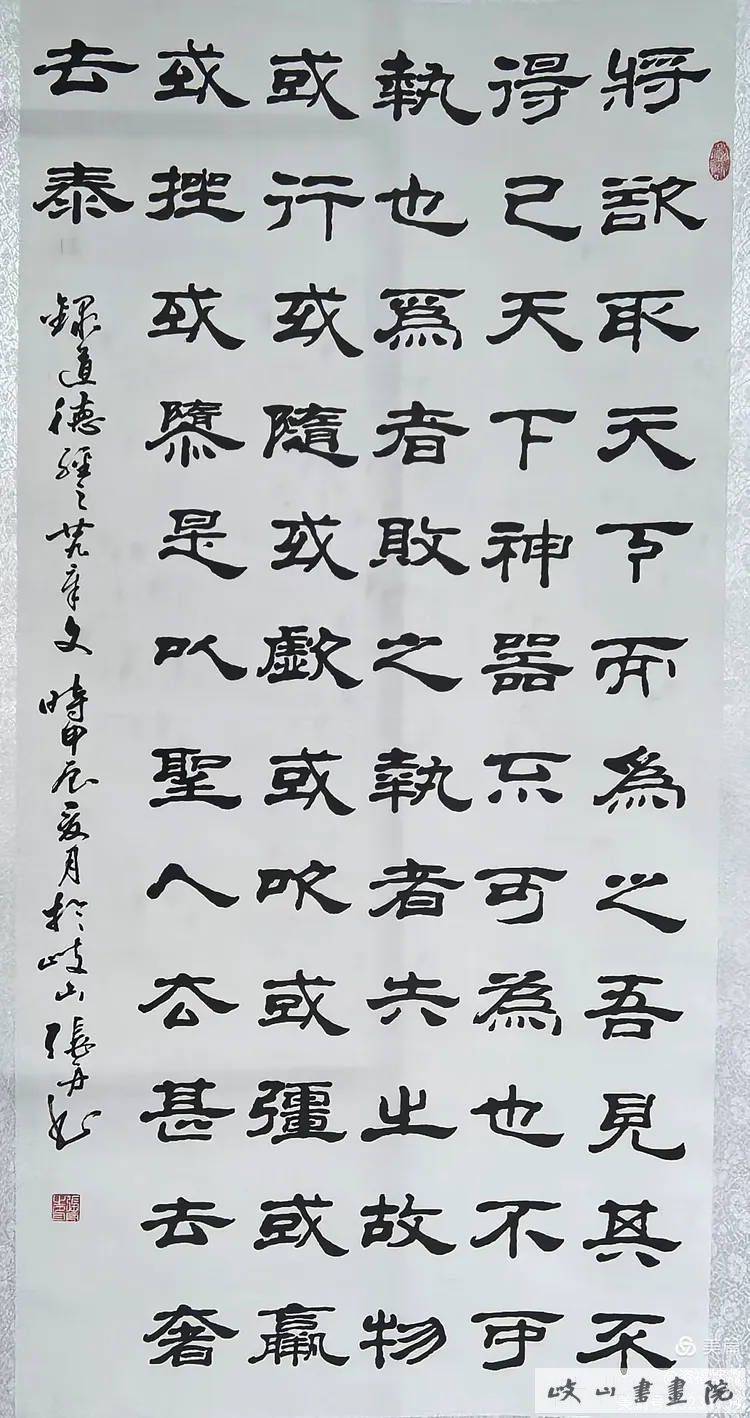 將欲取天下而爲之吾見其不
得已天下神器不可為也不可
執也爲者敗之執者失之故物
或行或隨或歔或吹或彊或羸
或挫或隳是以聖人去甚去奢
去泰
錄道德經之廿九章文 時甲辰夏月於岐山張丹
美篇
岐山書畫院